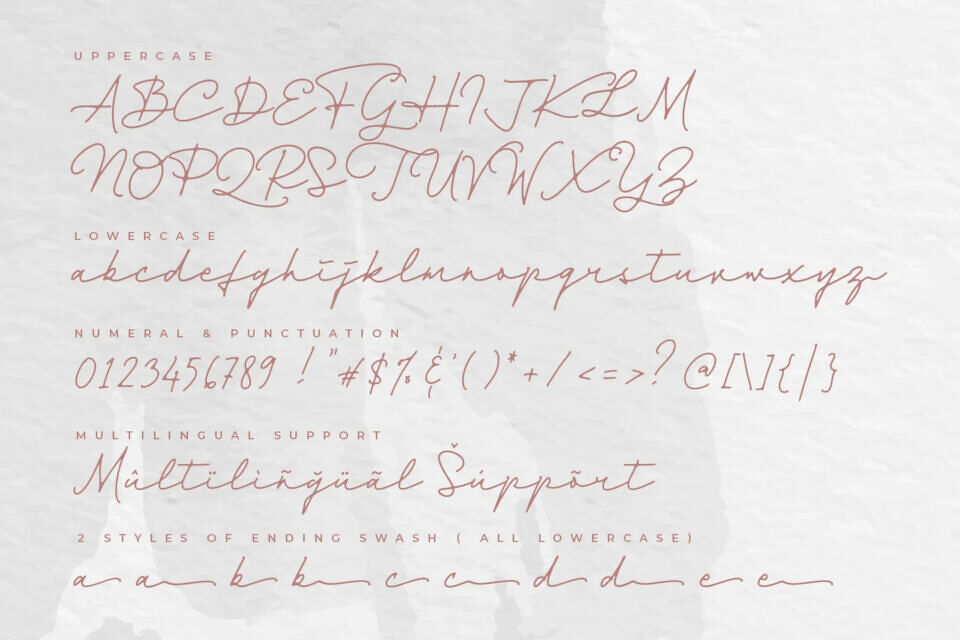 UPPERCASE
ABCDEFGHIJKLM
NOPQRSTUVWXYZ
LOWERCASE
abcdefghijklmnopqrstuvwxyz
NUMERAL & PUNCTUATION
0123456789 !"#$%&'()*+/<=>?@[\]{|}
MULTILINGUAL SUPPORT
Mûltïlìñğüãl Šúppõrt
2 STYLES OF ENDING SWASH ( ALL LOWERCASE)
a a b b c c d d e e